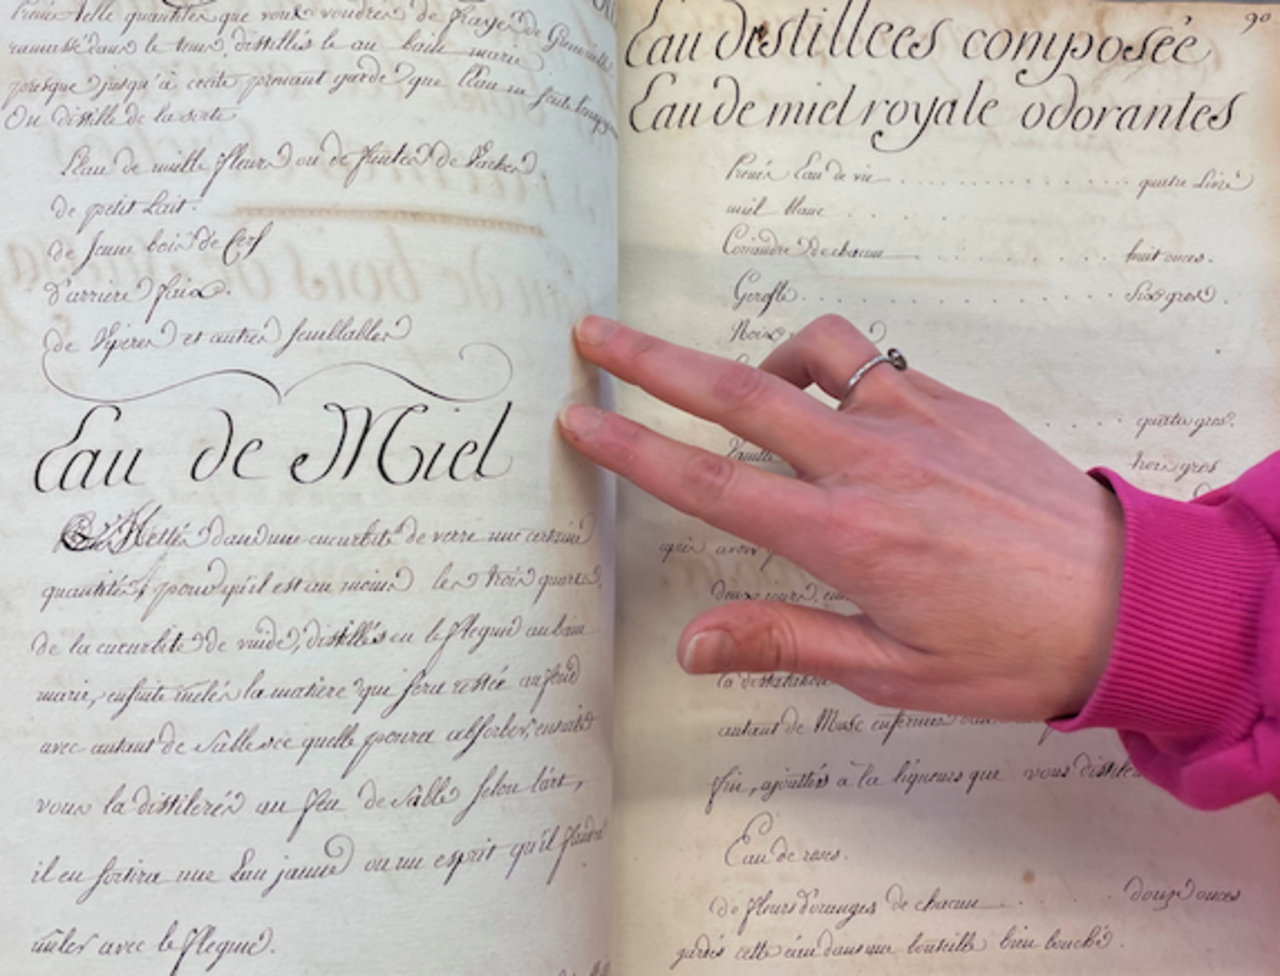 Prenés telle quantités que vous voudrés de frayer de Grenouilles
ramassé dans le tems distillés le au bain marie
presque jusqu'à cecité prenant garde que l'Eau ne sente
On distille de la sorte
L'eau de mille fleurs ou de fientes de Vaches
de petit Lait.
de jeune bois de Cerf
d'arriere faix.
de Viperes et autres semblables
Eau de Miel
Mettés dans une cucurbite de verre une certaine
quantités, pourvû qu'il est au moins les trois quarts
de la cucurbite de vuide, distillés en le flegme au bain
marie, ensuite mêlés la matiere qui sera restée au fond
avec autant de sable sec quelle poura absorber, ensuite
vous la distilerés au feu de sable selon l'art,
il en sortira une Eau jaune ou un esprit qu'il faudra
mêler avec le flegme.
90
Eau distillées composée
Eau de miel royale odorantes
Prenés Eau de vie . . . . . . . . . . . . quatre Livre
miel blanc . . . .
Coriandre de chacun . . . . . . . . . huit onces.
Gerofle . . . . . . . . . . . . . . . Six gros.
Noix
. . . . quatre gros.
Vanille trois gros
deux jours, en
la distilation
autant de Musc enfermés
fin, ajouttés à la liqueur que vous distile
Eau de roses.
de fleurs d'oranges de chacun . . . . douze onces
gardés cette eau dans une bouteille bien bouché.